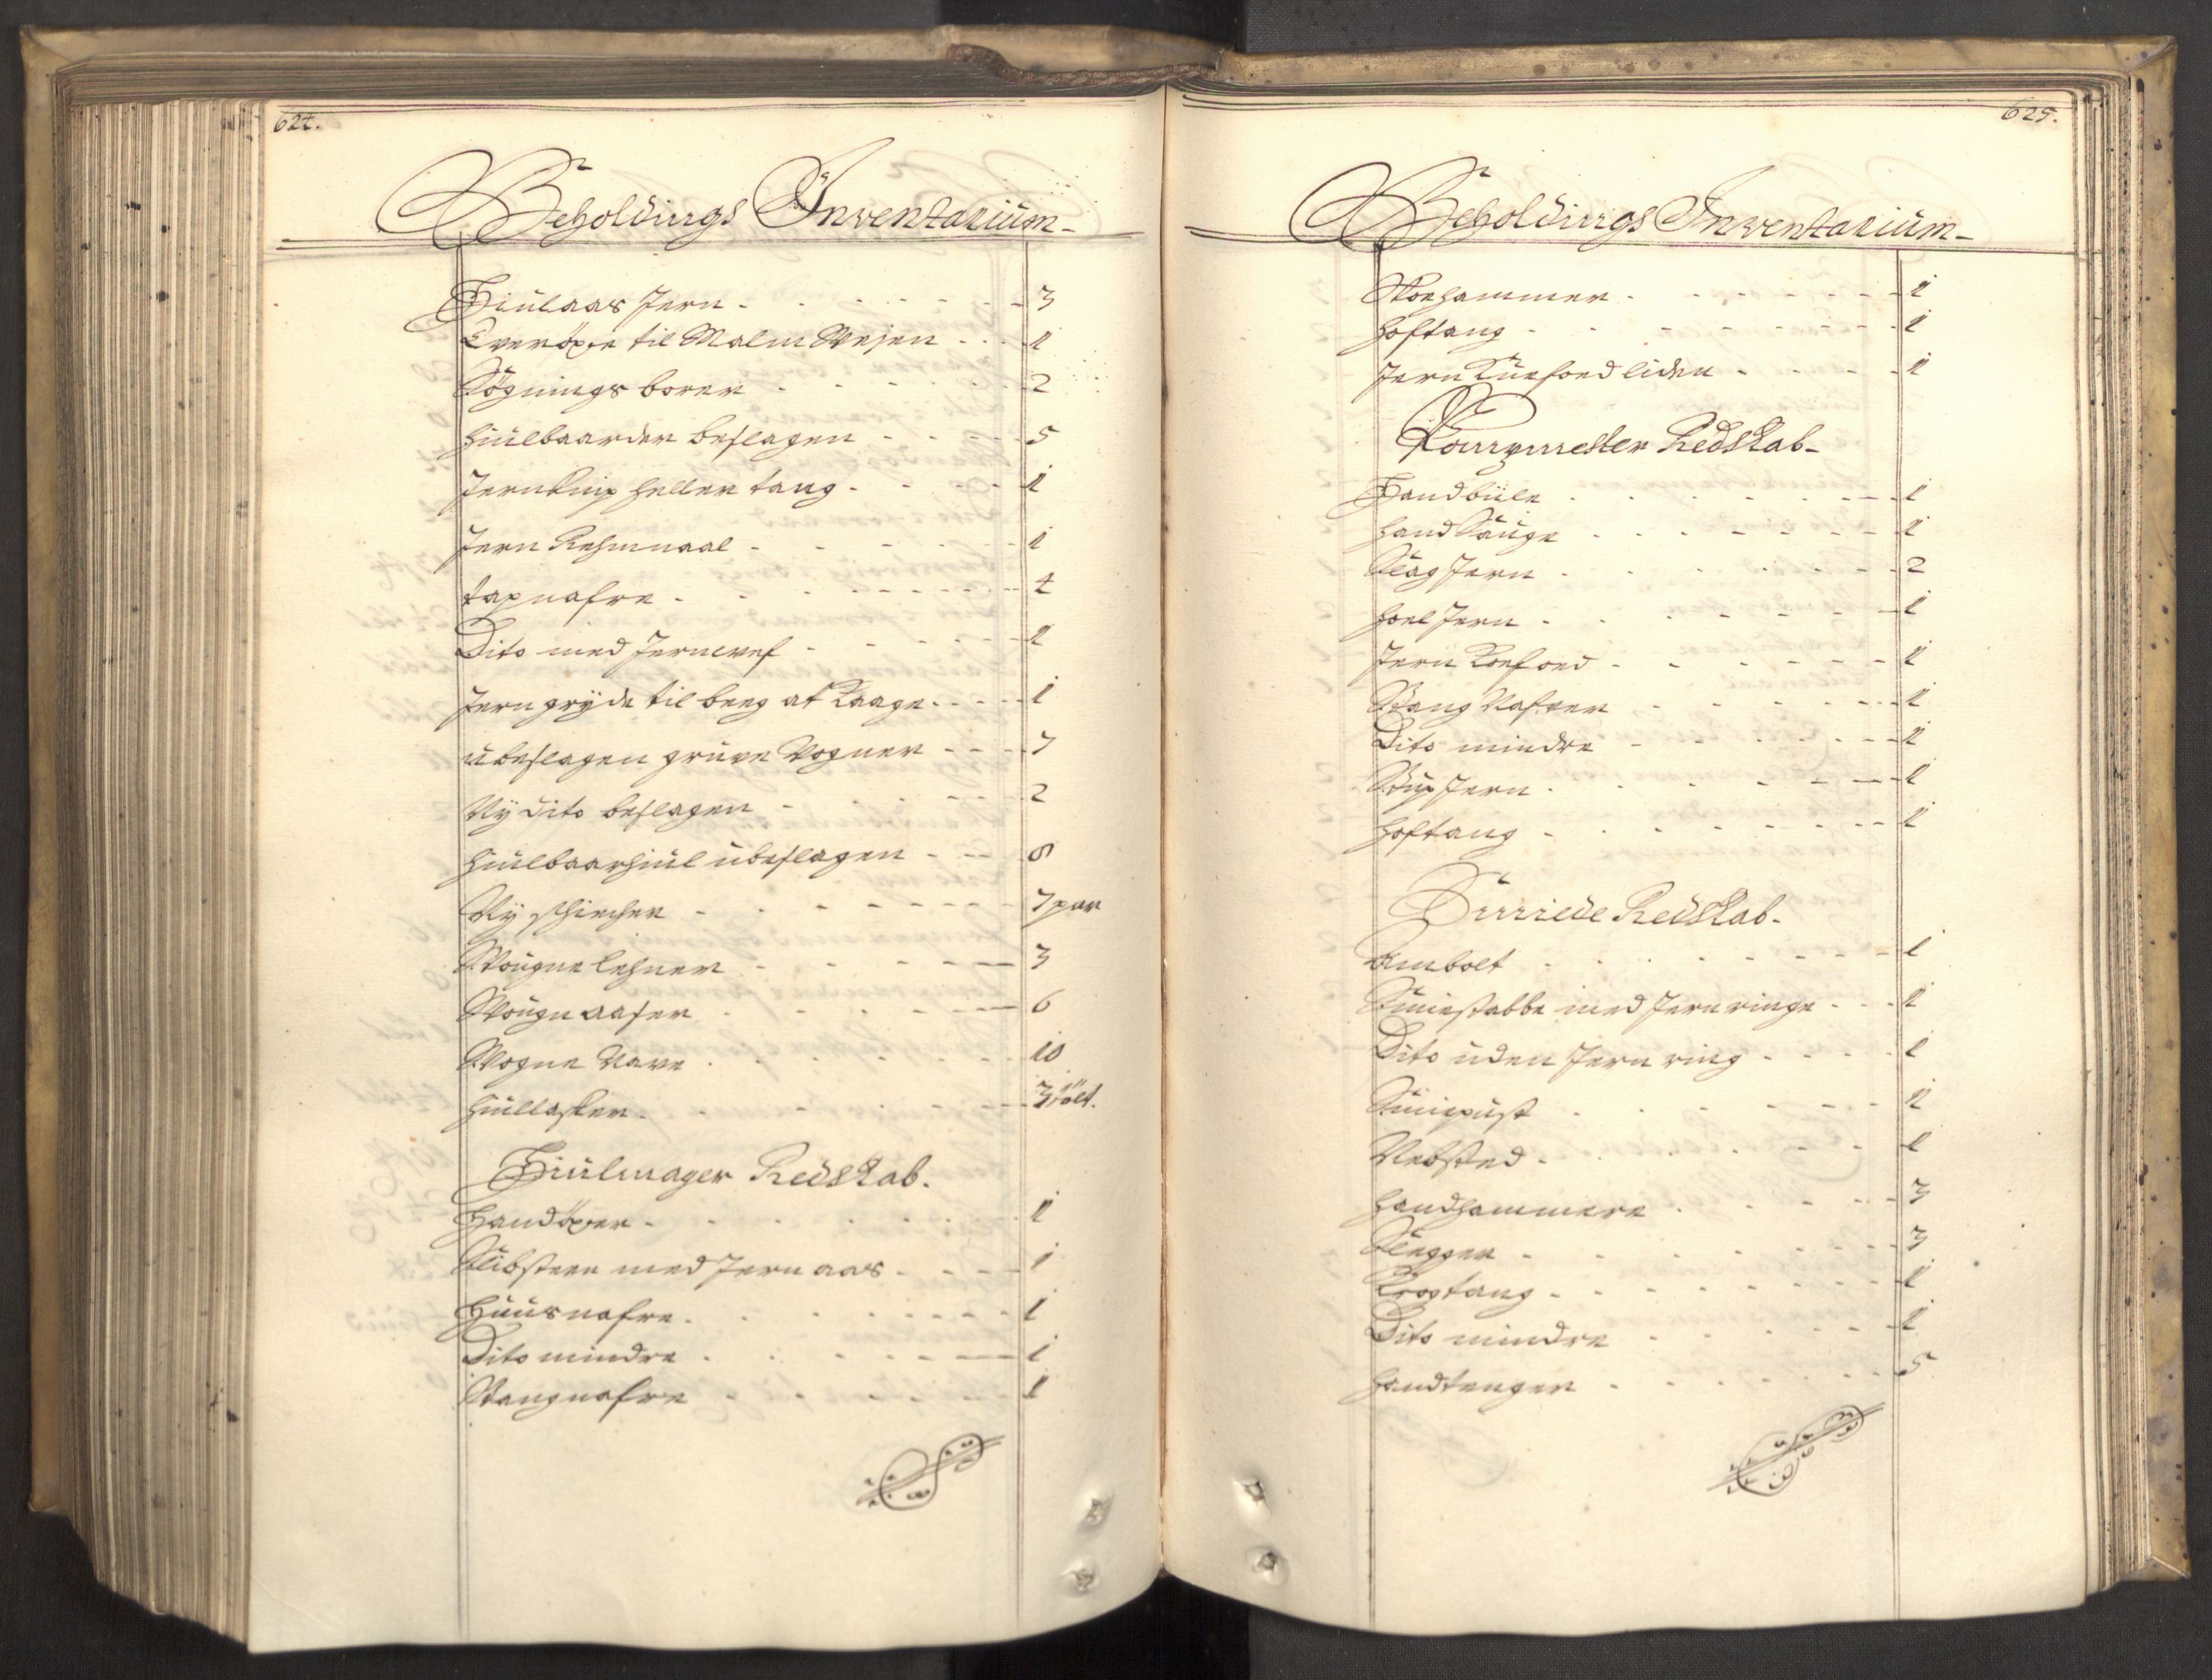 624.
Beholdings Inventarium
Hiulaas Jern - 3
Tveröxe til Malm Vejen - 1
Söknings borer - 2
hiulbaarder beslagen - 5
Jern Knip heller tang - 1
Jern Rehmnaal - 1
tapnafre - 4
Dito med Jern - 1
Jern gryde til beeg at Kaage - 1
ubeslagen gruve Vogner - 7
Ny dito beslagen - 2
hiulbaarhiul ubeslagen - 8
Ny - 7 par
Vougne lehner - 3
Vougn aaser - 6
Vogne Nave - 10
hiullasker - 3 tölt.
Hiulmager Redskab.
Handöxer - 1
Slibsteen med Jern aas - 1
Huusnafre - 1
Dito mindre - 1
Stangnafre - 1
625.
Beholdings Inventarium
Skoehammer - 1
Hoftang - 1
Jern Kuefoed liden - 1
Kounstmester Redskab
Handbiile - 1
hand Sauge - 1
Slag Jern - 2
hoel Jern - 1
Jern Koefoed - 1
Stang Nafver - 1
Dito mindre - 1
Snip Jern - 1
hoftang - 1
Smiede Redskab
Ambolt - 1
Smiestabbe med Jern ringe - 1
Dito uden Jern ring - 1
Smiepust - 1
Nebsted - 1
handhammere - 3
Slegger - 3
Krogtang - 1
Dito mindre - 1
handtenger - 5